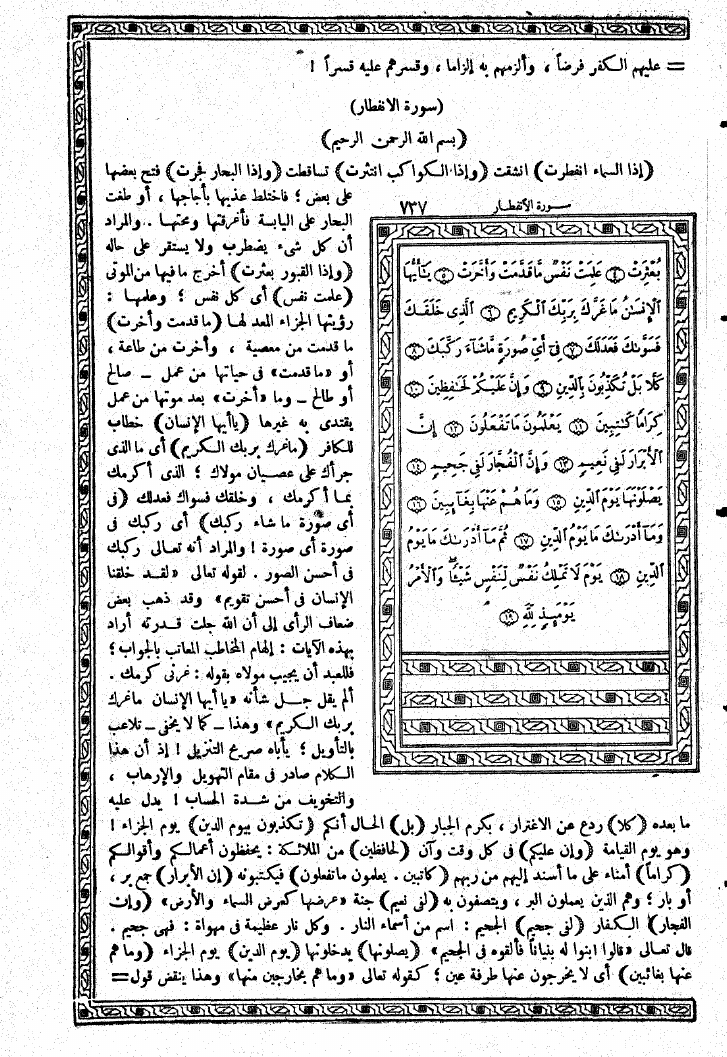 = عليهم الكفر فرضاً ، وألزمهم به إلزاما ، وقسرهم عليه قسراً !
(سورة الانفطار)
(بسم الله الرحمن الرحيم)
(إذا السماء انفطرت) انشقت (وإذا الكواكب انتثرت) تساقطت (وإذا البحار فجرت) فتح بعضها
على بعض ؛ فاختلط عذبها بأجاجها ، أو طغت
البحار على اليابسة فأغرقتها ومحتها . والمراد
أن كل شىء يضطرب ولا يستقر على حاله
(وإذا القبور بعثرت) أخرج ما فيها من الموتى
(علمت نفس) أى كل نفس ؛ وعلمها :
رؤيتها الجزاء المعد لها (ما قدمت وأخرت)
ما قدمت من معصية ، وأخرت من طاعة ،
أو «ما قدمت» فى حياتها من عمل ــ صالح
أو طالح ــ وما «أخرت» بعد موتها من عمل
يقتدى به غيرها (يا أيها الإنسان) خطاب
للكافر (ما غرك بربك الكريم) أى ما الذى
جرأك على عصيان مولاك ؛ الذى أكرمك
بما أكرمك ، وخلقك فسواك فعدلك (فى
أى صورة ما شاء ركبك) أى ركبك فى
صورة أى صورة ! والمراد أنه تعالى ركبك
فى أحسن الصور . لقوله تعالى «لقد خلقنا
الإنسان فى أحسن تقويم» وقد ذهب بعض
ضعاف الرأى إلى أن الله جلت قدرته أراد
بهذه الآيات : إلهام المخاطب المعاتب بالجواب ؛
فللعبد أن يجيب مولاه بقوله : غرنى كرمك .
ألم يقل جل شأنه «يا أيها الإنسان ما غرك
بربك الكريم» وهذا ــ كما لا يخفى ــ تلاعب
بالتأويل ؛ يأباه صريح التنزيل ! إذ أن هذا
الكلام صادر فى مقام التهويل والإرهاب ،
والتخويف من شدة الحساب ! يدل عليه
سورة الانفطار ٧٣٧
بُعْثِرَتْ ④ عَلِمَتْ نَفْسٌ مَّا قَدَّمَتْ وَأَخَّرَتْ ⑤ يَٰٓأَيُّهَا
ٱلْإِنسَٰنُ مَا غَرَّكَ بِرَبِّكَ ٱلْكَرِيمِ ⑥ ٱلَّذِى خَلَقَكَ
فَسَوَّىٰكَ فَعَدَلَكَ ⑦ فِىٓ أَىِّ صُورَةٍ مَّا شَآءَ رَكَّبَكَ ⑧
كَلَّا بَلْ تُكَذِّبُونَ بِٱلدِّينِ ⑨ وَإِنَّ عَلَيْكُمْ لَحَٰفِظِينَ ⑩
كِرَامًا كَٰتِبِينَ ⑪ يَعْلَمُونَ مَا تَفْعَلُونَ ⑫ إِنَّ
ٱلْأَبْرَارَ لَفِى نَعِيمٍ ⑬ وَإِنَّ ٱلْفُجَّارَ لَفِى جَحِيمٍ ⑭
يَصْلَوْنَهَا يَوْمَ ٱلدِّينِ ⑮ وَمَا هُمْ عَنْهَا بِغَآئِبِينَ ⑯
وَمَآ أَدْرَىٰكَ مَا يَوْمُ ٱلدِّينِ ⑰ ثُمَّ مَآ أَدْرَىٰكَ مَا يَوْمُ
ٱلدِّينِ ⑱ يَوْمَ لَا تَمْلِكُ نَفْسٌ لِّنَفْسٍ شَيْـًٔا وَٱلْأَمْرُ
يَوْمَئِذٍ لِّلَّهِ ⑲
ما بعده (كلا) ردع عن الاغترار ، بكرم الجبار (بل) الحال أنكم (تكذبون بيوم الدين) يوم الجزاء !
وهو يوم القيامة (وإن عليكم) فى كل وقت وآن (لحافظين) من الملائكة : يحفظون أعمالكم وأقوالكم
(كراماً) أمناء على ما أسند إليهم من ربهم (كاتبين . يعلمون ما تفعلون) فيكتبونه (إن الأبرار) جمع بر ،
أو بار ؛ وهم الذين يعملون البر ، ويتصفون به (لفى نعيم) جنة «عرضها كعرض السماء والأرض» (وإن
الفجار) الكفار (لفى جحيم) الجحيم : اسم من أسماء النار . وكل نار عظيمة فى مهواة : فهى جحيم .
قال تعالى «قالوا ابنوا له بنياناً فألقوه فى الجحيم» (يصلونها) يدخلونها (يوم الدين) يوم الجزاء (وما هم
عنها بغائبين) أى لا يخرجون عنها طرفة عين ؛ كقوله تعالى «وما هم بخارجين منها» وهذا ينقض قول =